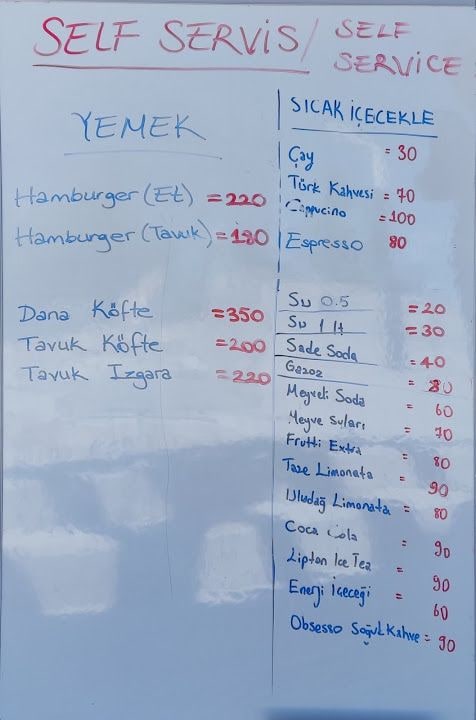 SELF SERVİS / SELF SERVICE
YEMEK
Hamburger (Et) = 220
Hamburger (Tavuk) = 180
Dana Köfte = 350
Tavuk Köfte = 200
Tavuk Izgara = 220
SICAK İÇECEKLE
Çay = 30
Türk Kahvesi = 70
Cappucino = 100
Espresso 80
Su 0.5 = 20
Su 1 lt = 30
Sade Soda = 40
Gazoz =
Meyveli Soda = 60
Meyve Suları = 70
Frutti Extra = 80
Taze Limonata = 90
Uludağ Limonata = 80
Coca Cola = 90
Lipton Ice Tea = 90
Enerji İçeceği = 60
Obsesso Soğuk Kahve = 90